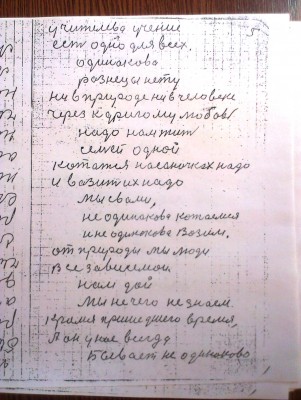 5
учителва учение
ест одно для всех.
одинаково
разнецы нету
ни в природе ни в человеке
через к другому любовь
надо нам жит
семей одной
котатся на саночках надо
и возит их надо
мы свами,
не одинакова котаемся
и не одинокова возим.
от природы мы люди
все зависемои.
нам дай
мы нечего не знаем.
время пришедшего время,
А он у нас всегда
бывает не одиноково